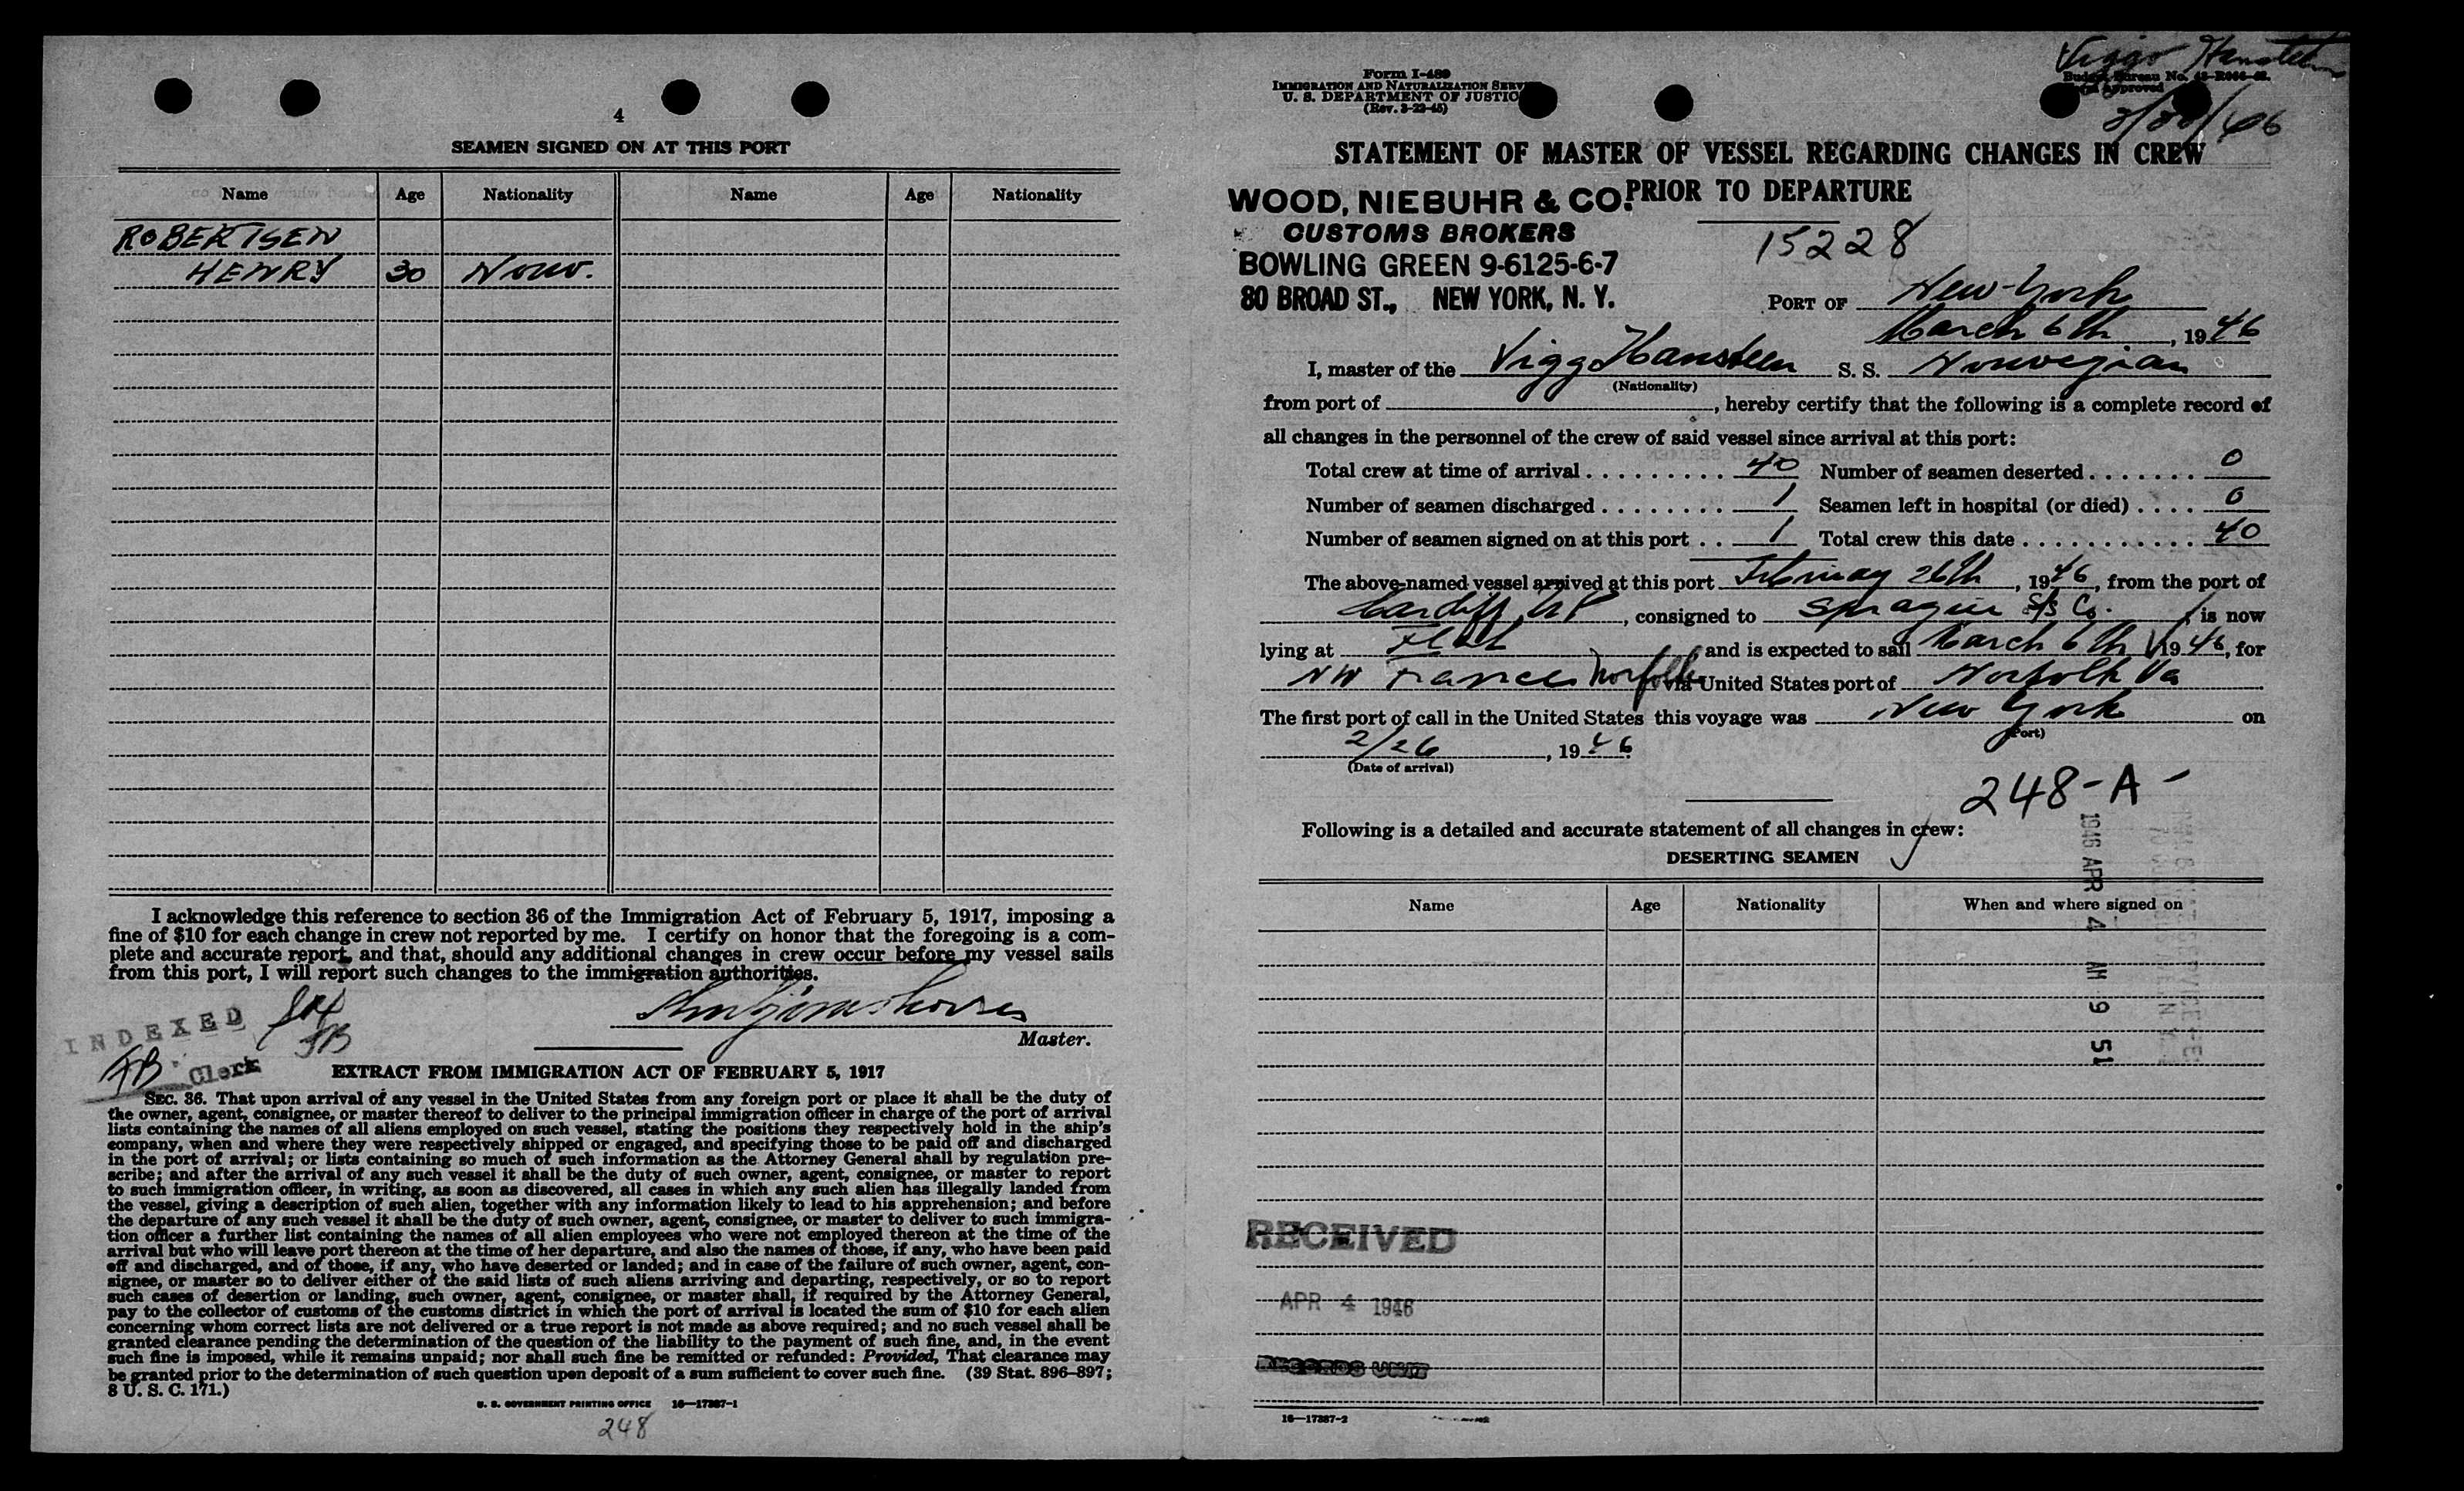 4
SEAMEN SIGNED ON AT THIS PORT
Name Age Nationality Name Age Nationality
ROBERTSEN
HENRY 30 Norw.
I acknowledge this reference to section 36 of the Immigration Act of February 5, 1917, imposing a
fine of $10 for each change in crew not reported by me. I certify on honor that the foregoing is a com-
plete and accurate report, and that, should any additional changes in crew occur before my vessel sails
from this port, I will report such changes to the immigration authorities.
INDEXED
FB Clerk
FB
Master.
EXTRACT FROM IMMIGRATION ACT OF FEBRUARY 5, 1917
SEC. 36. That upon arrival of any vessel in the United States from any foreign port or place it shall be the duty of
the owner, agent, consignee, or master thereof to deliver to the principal immigration officer in charge of the port of arrival
lists containing the names of all aliens employed on such vessel, stating the positions they respectively hold in the ship's
company, when and where they were respectively shipped or engaged, and specifying those to be paid off and discharged
in the port of arrival; or lists containing so much of such information as the Attorney General shall by regulation pre-
scribe; and after the arrival of any such vessel it shall be the duty of such owner, agent, consignee, or master to report
to such immigration officer, in writing, as soon as discovered, all cases in which any such alien has illegally landed from
the vessel, giving a description of such alien, together with any information likely to lead to his apprehension; and before
the departure of any such vessel it shall be the duty of such owner, agent, consignee, or master to deliver to such immigra-
tion officer a further list containing the names of all alien employees who were not employed thereon at the time of the
arrival but who will leave port thereon at the time of her departure, and also the names of those, if any, who have been paid
off and discharged, and of those, if any, who have deserted or landed; and in case of the failure of such owner, agent, con-
signee, or master so to deliver either of the said lists of such aliens arriving and departing, respectively, or so to report
such cases of desertion or landing, such owner, agent, consignee, or master shall, if required by the Attorney General,
pay to the collector of customs of the customs district in which the port of arrival is located the sum of $10 for each alien
concerning whom correct lists are not delivered or a true report is not made as above required; and no such vessel shall be
granted clearance pending the determination of the question of the liability to the payment of such fine, and, in the event
such fine is imposed, while it remains unpaid; nor shall such fine be remitted or refunded: Provided, That clearance may
be granted prior to the determination of such question upon deposit of a sum sufficient to cover such fine. (39 Stat. 896–897;
8 U. S. C. 171.)
U. S. GOVERNMENT PRINTING OFFICE 16—17387-1
248
Viggo Hansteen
Form I-489
IMMIGRATION AND NATURALIZATION SERV
U. S. DEPARTMENT OF JUSTIC
(Rev. 3-22-45)
Budget Bureau No.
Approved
STATEMENT OF MASTER OF VESSEL REGARDING CHANGES IN CREW
PRIOR TO DEPARTURE
WOOD, NIEBUHR & CO.
CUSTOMS BROKERS
BOWLING GREEN 9-6125-6-7
80 BROAD ST., NEW YORK, N. Y.
15228
PORT OF New-York
March 6th, 1946
I, master of the Viggo Hansteen S. S. Norwegian
(Nationality)
from port of , hereby certify that the following is a complete record of
all changes in the personnel of the crew of said vessel since arrival at this port:
Total crew at time of arrival 40 Number of seamen deserted 0
Number of seamen discharged 1 Seamen left in hospital (or died) 0
Number of seamen signed on at this port 1 Total crew this date 40
The above-named vessel arrived at this port February 26th, 1946, from the port of
Cardiff, consigned to Sprague S/S Co., is now
lying at and is expected to sail March 6th 1946, for
NW France Norfolk via United States port of Norfolk Va
The first port of call in the United States this voyage was New York on
(Port)
2/26, 1946
(Date of arrival)
248-A-
Following is a detailed and accurate statement of all changes in crew:
DESERTING SEAMEN
Name Age Nationality When and where signed on
1946 APR 4 AM 9 51
RECEIVED
APR 4 1946
RECORDS UNIT
16—17387-2